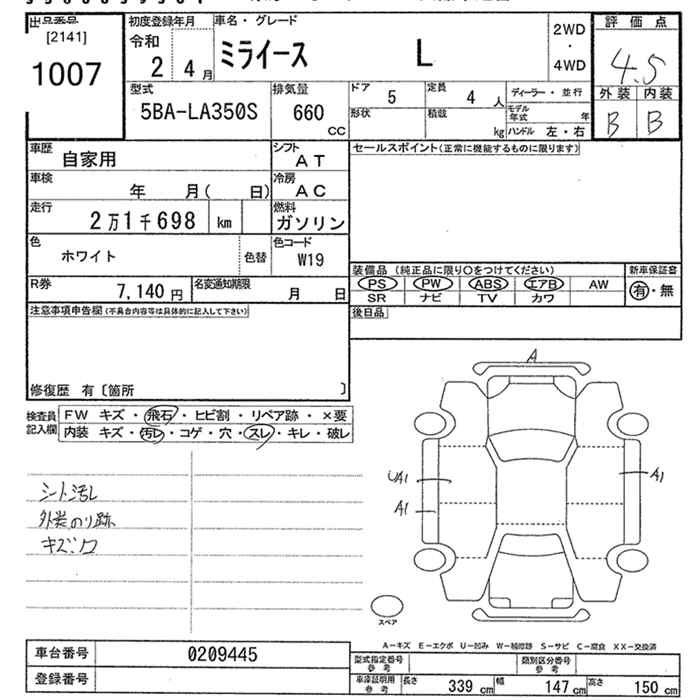 出品番号 初度登録年月 車名・グレード 2WD・4WD 評価点
[2141] 令和
1007 2年 4月 ミライース L 4.5
型式 排気量 ドア 5 定員 4人 ディーラー・並行 外装 内装
5BA-LA350S 660 CC 形状 積載 kg モデル年式 年 B B
ハンドル 左・右
車歴 自家用 シフト AT セールスポイント(正常に機能するものに限ります)
車検 年 月( 日) 冷房 AC
走行 2万1千698 km 燃料 ガソリン
色 ホワイト 色替 色コード W19
装備品 (純正品に限り○をつけてください) 新車保証書
PS PW ABS エアB AW 有・無
SR ナビ TV カワ
R券 7,140円 名変通知期限 月 日
注意事項申告欄(不具合内容等は具体的に記入して下さい) 後日品
修復歴 有〔箇所 〕
検査員記入欄 FW キズ・飛石・ヒビ割・リペア跡・×要
内装 キズ・汚レ・コゲ・穴・スレ・キレ・破レ
A
UA1 A1
A1
シート汚レ
外装のり跡
キズ
スペア
A−キズ E−エクボ U−凹み W−補修跡 S−サビ C−腐食 XX−交換済
車台番号 0209445 型式指定番号参考 類別区分番号参考
登録番号 車庫証明用参考 長さ 339cm 幅 147cm 高さ 150cm